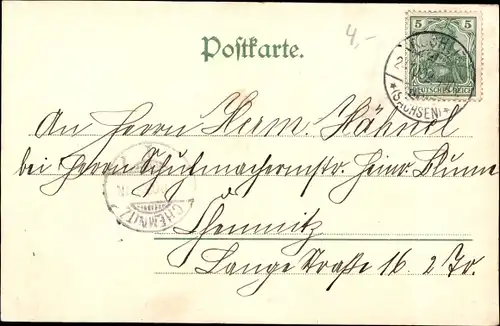 4,-
5 5
Postkarte.
DEUTSCHES REICH
*(SACHSEN)*
An Herrn Herm. Hähnel
bei Herrn Schuhmachermstr. Heinr. Blume
CHEMNITZ
Chemnitz
Lange Straße 16. 2 Tr.